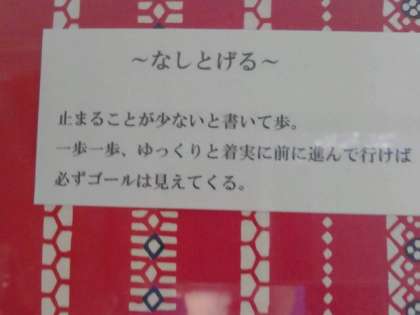 ～なしとげる～
止まることが少ないと書いて歩。
一歩一歩、ゆっくりと着実に前に進んで行けば
必ずゴールは見えてくる。